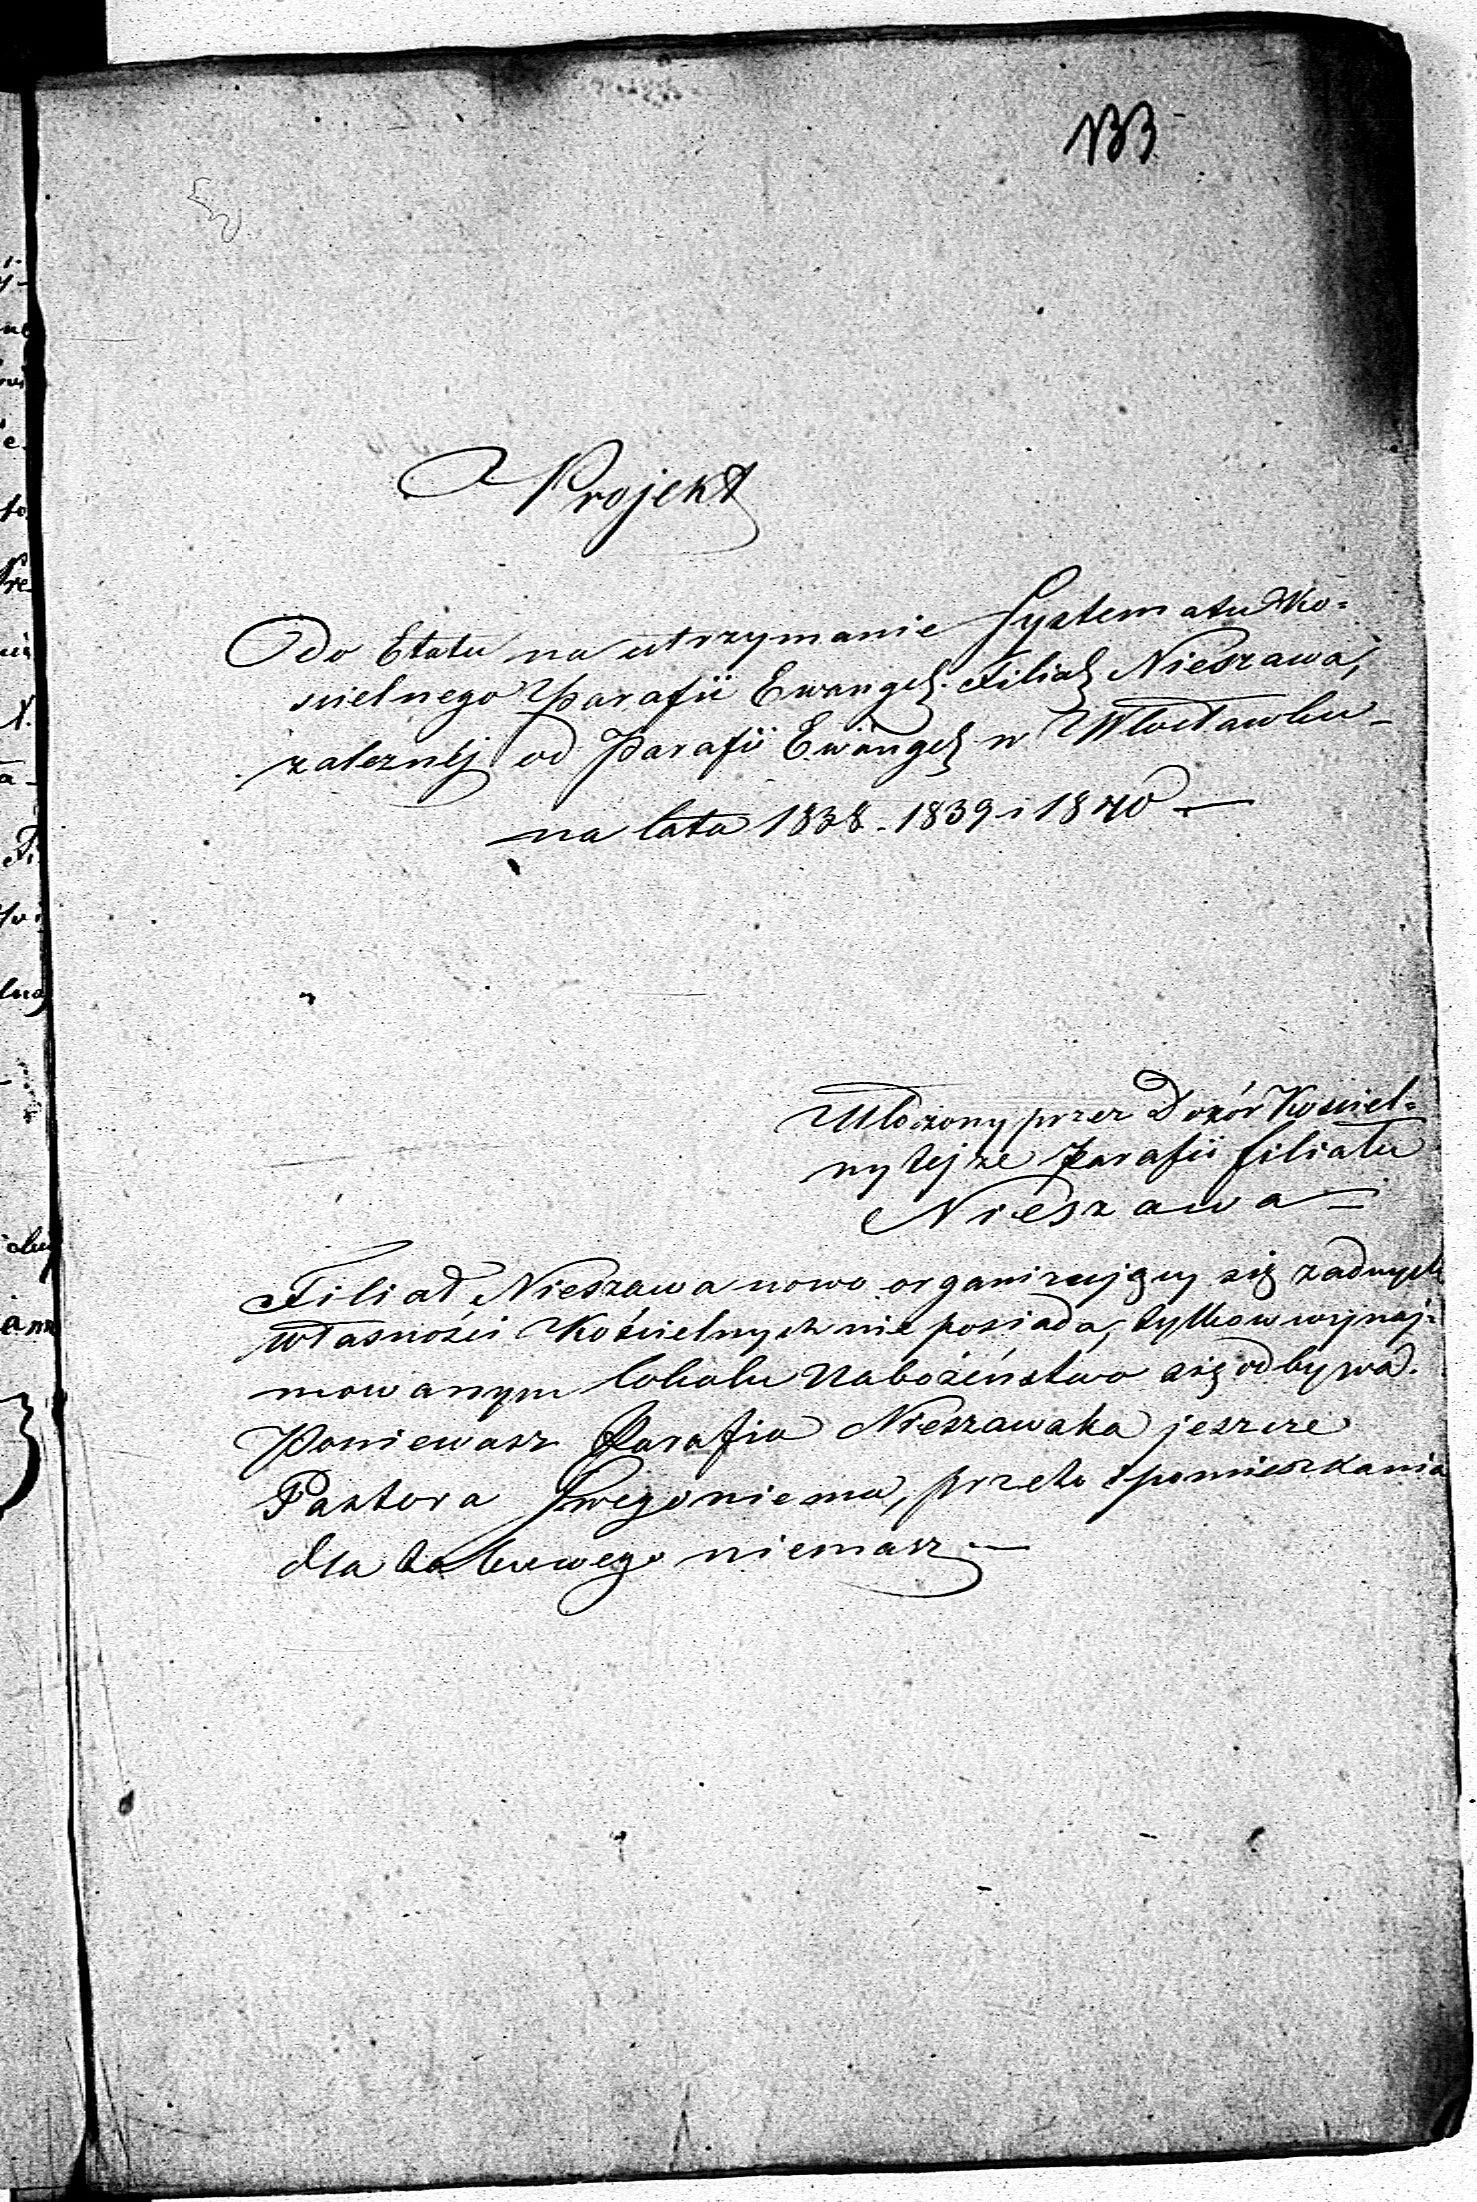 133
Projekt
Do Etatu na utrzymanie Systematu Ko=
scielnego Parafii Ewangel. Filiał Nieszawa,
zależnéj od Parafii Ewangel w Włocławku
na lata 1838. 1839 i 1840
Ułożony przez Dozór Kościel=
ny tejże Parafii filiału
Nieszawa
Filiał Nieszawa nowo organizujący się żadnych
własności Kościelnych nie posiada, tylko w wynaj=
mowanym lokalu Nabożeństwo się odbywa.
Ponieważ Parafia Nieszawska jeszcze
Pastora swego niema, przeto i pomieszkania
dla takowego niemasz